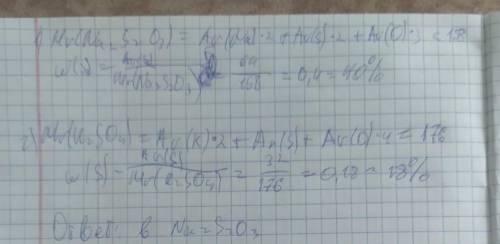 1) Mr(Na2S2O3) = Ar(Na)·2 + Ar(S)·2 + Ar(O)·3 = 158
w(S) = Ar(S) / Mr(Na2S2O3) = 64 / 158 = 0,4 = 40%
2) Mr(K2SO4) = Ar(K)·2 + Ar(S) + Ar(O)·4 = 176
w(S) = Ar(S) / Mr(K2SO4) = 32 / 176 = 0,18 = 18%
Ответ: в Na2S2O3